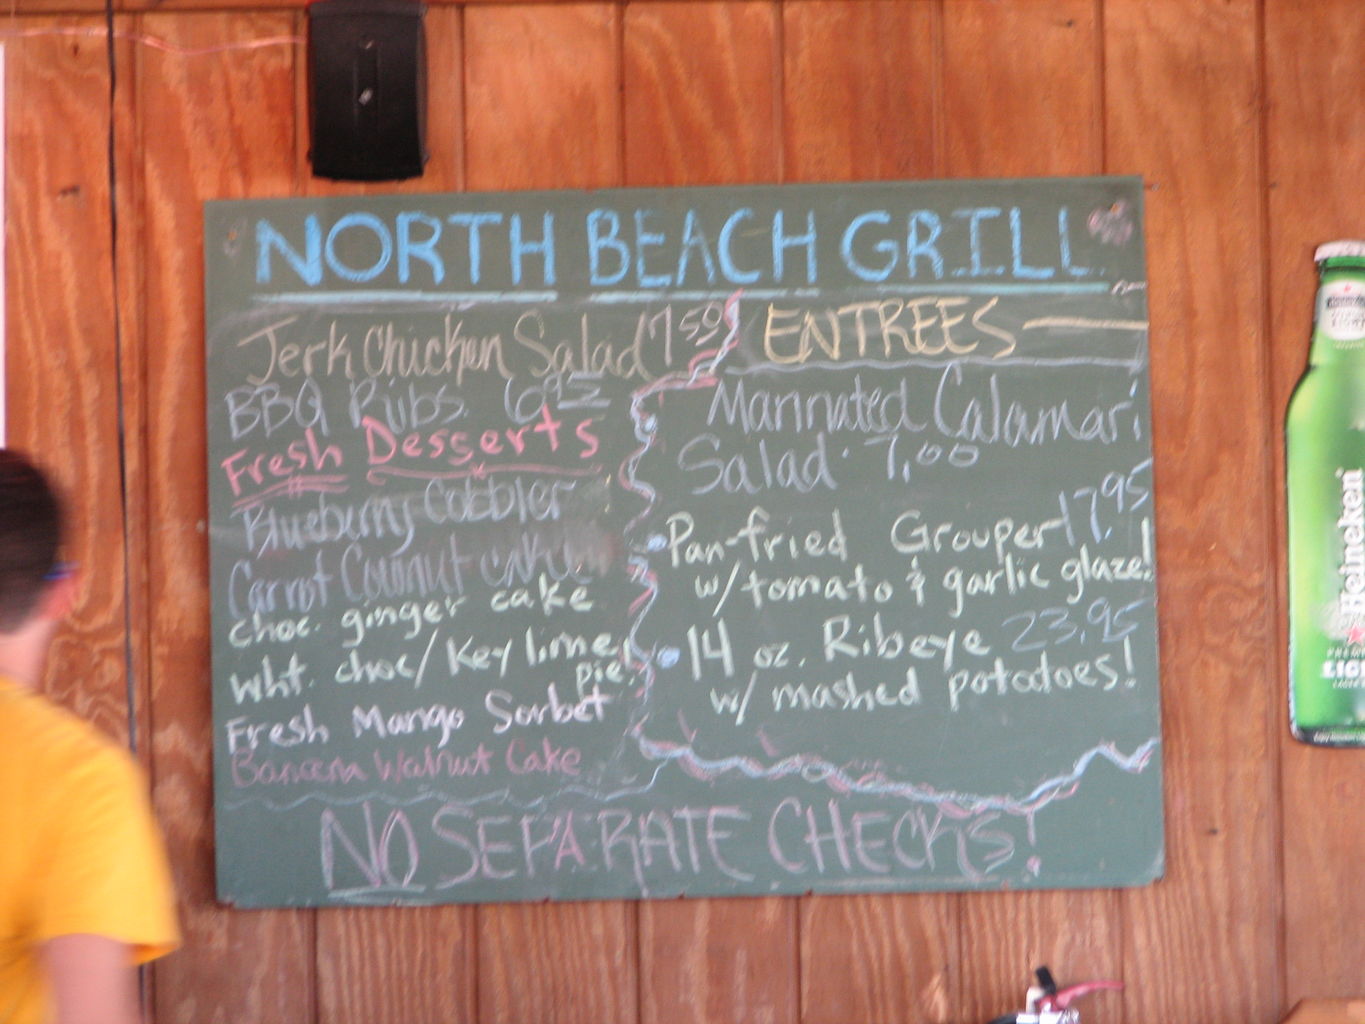 NORTH BEACH GRILL
Jerk Chicken Salad 7.50
BBQ Ribs. 6.95
Fresh Desserts
Blueberry Cobbler
Carrot Coconut cake
choc. ginger cake
wht. choc/Key lime
pie!
Fresh Mango Sorbet
Banana Walnut Cake
ENTREES
Marinated Calamari
Salad. 7.00
Pan-fried Grouper 17.95
w/tomato & garlic glaze!
14 oz. Ribeye 23.95
w/ mashed potatoes!
NO SEPARATE CHECKS!
Heineken